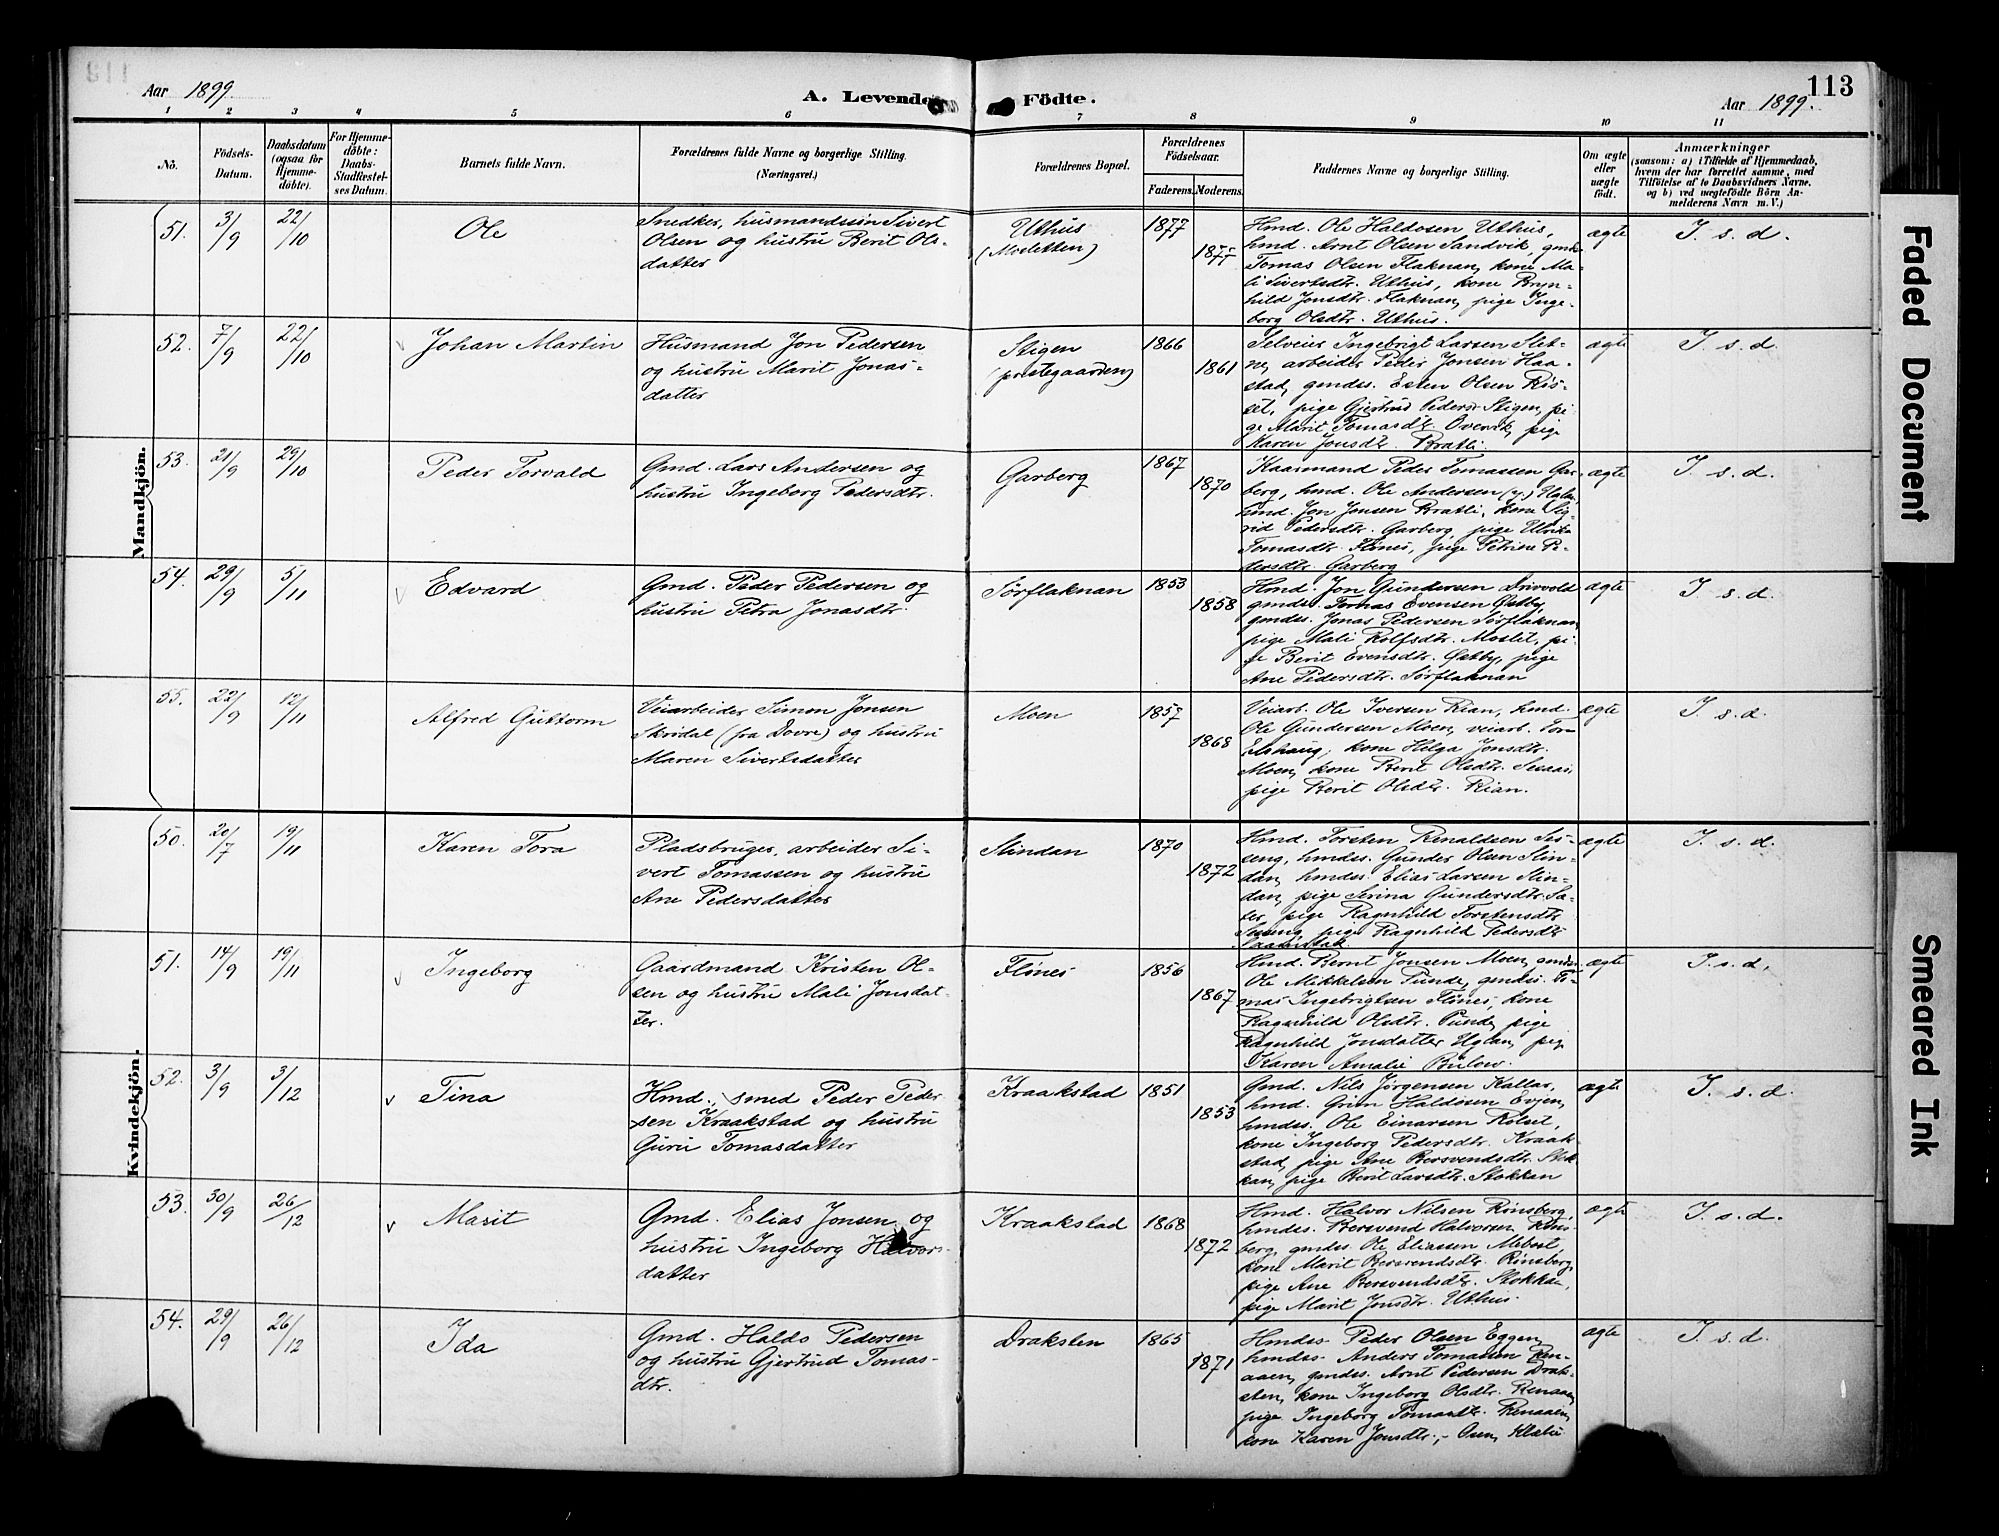 113
Aar 1899.
A. Levende Födte.
Aar 1899.
1 2 3 4 5 6 7 8 9 10 11
No.
Födsels-
Datum.
Daabsdatum
(ogsaa for
Hjemme-
döbte).
For Hjemme-
döbte:
Daabs-
Stadfæstel-
ses Datum.
Barnets fulde Navn.
Forældrenes fulde Navne og borgerlige Stilling.
(Næringsvei.)
Forældrenes Bopæl.
Forældrenes
Födselsaar.
Faderens. Moderens.
Faddernes Navne og borgerlige Stilling.
Om ægte
eller
uægte
født.
Anmærkninger
(saasom: a) i Tilfælde af Hjemmedaab,
hvem der har forrettet samme, med
Tilföielse af to Daabsvidners Navne,
og b) ved uægtefödte Börn An-
melderens Navn m. V.)
Mandkjön.
51. 3/9 22/10
Ole
Snedker, husmandssøn Sivert
Olsen og hustru Berit Ols-
datter
Uthus
(Moletten)
1877
1877
Hmd. Ole Haldosen Uthus,
hmd. Arnt Olsen Sandvik, gmds.
Tomas Olsen Flaknan, kone Ma-
li Sivertsdtr. Uthus, kone Bryn-
hild Jonsdtr. Flaknan, pige Inge-
borg Olsdtr. Uthus.
ægte
I. s. d.
52. 7/9 22/10
Johan Martin
Husmand Jon Pedersen
og hustru Marit Jonas-
datter
Stigen
(prestegaarden)
1866
1861
Selveier Ingebrigt Larsen Slet-
ne, arbeider Peder Jonsen Haa-
stad, gmds. Esten Olsen Røs-
set, pige Gjertrud Pedersd. Stigen, pi-
ge Marit Tomasdtr. Overvik, pige
Karen Jonsdtr. Bratli.
ægte
I. s. d.
53. 21/9 29/10
Peder Torvald
Gmd. Lars Andersen og
hustru Ingeborg Pedersdtr.
Garberg
1867
1870
Kaarmand Peder Tomassen Gar-
berg, hmd. Ole Andersen (y.) Uglan,
hmd. Jon Jonsen Bratli, kone Sig-
rid Pedersdtr. Garberg, pige Ulrika
Tomasdtr. Flønes, pige Petrine Pe-
dersdtr. Garberg
ægte
I. s. d.
54. 29/9 5/11
Edvard
Gmd. Peder Pedersen og
hustru Petra Jonasdtr.
Sørflaknan
1853
1858
Hmd. Jon Gundersen Drivvold
gmds. Tomas Evensen Østby,
gmds. Jonas Pedersen Sørflaknan,
pige Mali Rolfsdtr. Moslet, pi-
ge Berit Evensdtr. Østby, pige
Ane Pedersdtr. Sørflaknan
ægte
I. s. d.
55. 22/9 12/11
Alfred Guttorm
Veiarbeider Simon Jonsen
Skridal (fra Dovre) og hustru
Maren Sivertsdatter
Moen
1857
1868
Veiarb. Ole Iversen Rian, hmd.
Ole Gundersen Moen, veiarb. Tore
Elshaug, kone Helga Jonsdtr.
Moen, kone Berit Olsdtr.
pige Berit Olsdtr. Rian.
ægte
I. s. d.
Kvindekjön.
50. 20/7 19/11
Karen Tora
Pladsbruger, arbeider Si-
vert Tomassen og hustru
Ane Pedersdatter
Stindan
1870
1872
Hmd. Torsten Renaldsen Ses-
seng, hmds. Gunder Olsen Stin-
dan, hmds. Elias Larsen Stin-
dan, pige Serina Gundersdtr. Sæ-
ter, pige Ragnhild Torstensdtr.
pige Ragnhild Pedersdtr.
ægte
I. s. d.
51. 14/9 19/11
Ingeborg
Gaardmand Kristen Ol-
sen og hustru Mali Jonsdat-
ter.
Flønes
1856
1867
Hmd. Bernt Jonsen Moen, gmds.
Ole Mikkelsen Punde, gmds. To-
mas Ingebrigtsen Flønes, kone
Ragnhild Olsdtr. Punde, pige
Ragnhild Jonsdatter Uglan, pige
Karen Amalie Bülow.
ægte
I. s. d.
52. 3/9 3/12
Tina
Hmd., smed Peder Peder
sen Kraakstad og hustru
Guru Tomasdatter
Kraakstad
1851
1853
Gmd. Nils Jørgensen Kallar,
hmd. Grim Haldosen Evjen,
hmds. Ole Einarsen Rolset,
kone Ingeborg Pedersdtr. Kraak-
stad, pige Ane Bersvendsdtr. Stok-
kan, pige Berit Larsdtr. Stokkan
ægte
I. s. d.
53. 30/9 26/12
Marit
Gmd. Elias Jonsen og
hustru Ingeborg Halvors-
datter
Kraakstad
1868
1872
Hmd. Halvor Nilsen Rønsberg,
hmds. Bersvend Halvorsen Røns-
berg, gmds. Ole Eliassen Mebost
kone Marit Bersvendsdtr. Rønsberg,
pige Ane Bersvendsdtr. Stokkan,
pige Marit Jonsdtr. Uthus.
ægte
I. s. d.
54. 29/9 26/12
Ida
Gmd. Haldo Pedersen
og hustru Gjertrud Tomas-
dtr.
Draksten
1865
1871
Hmds. Peder Olsen Eggen,
hmds. Anders Tomassen Ren-
aaen, gmds. Arnt Pedersen Drak-
sten, kone Ingeborg Olsdtr. Renaaen,
pige Ingeborg Tomasdtr. Renaaen,
kone Karen Jonsdtr., Osen, Klæbu
ægte
I. s. d.
Faded Document
Smeared Ink